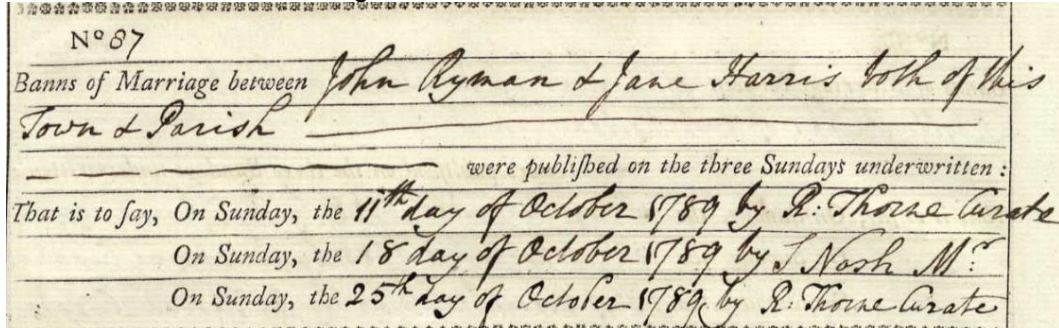 No 87
Banns of Marriage between John Ryman & Jane Harris both of this
Town & Parish
were publiſhed on the three Sundays underwritten :
That is to ſay, On Sunday, the 11th day of October 1789 by R: Thorne Curate
On Sunday, the 18 day of October 1789 by S Nosh Mr:
On Sunday, the 25th day of October 1789 by R: Thorne Curate